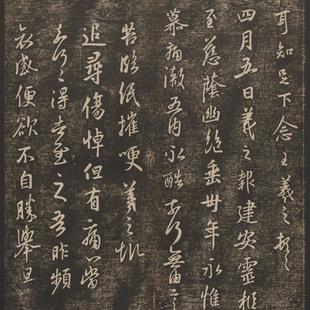 耳知足下念王羲之頓首
四月五日羲之報建安靈柩
至慈蔭幽絕垂卅年永惟
慕痛徹五內永酷奈何無由言
告臨紙摧哽羲之報
追尋傷悼但有痛心當
奈何奈何得告慰之吾昨頻
哀感便欲不自勝舉旦